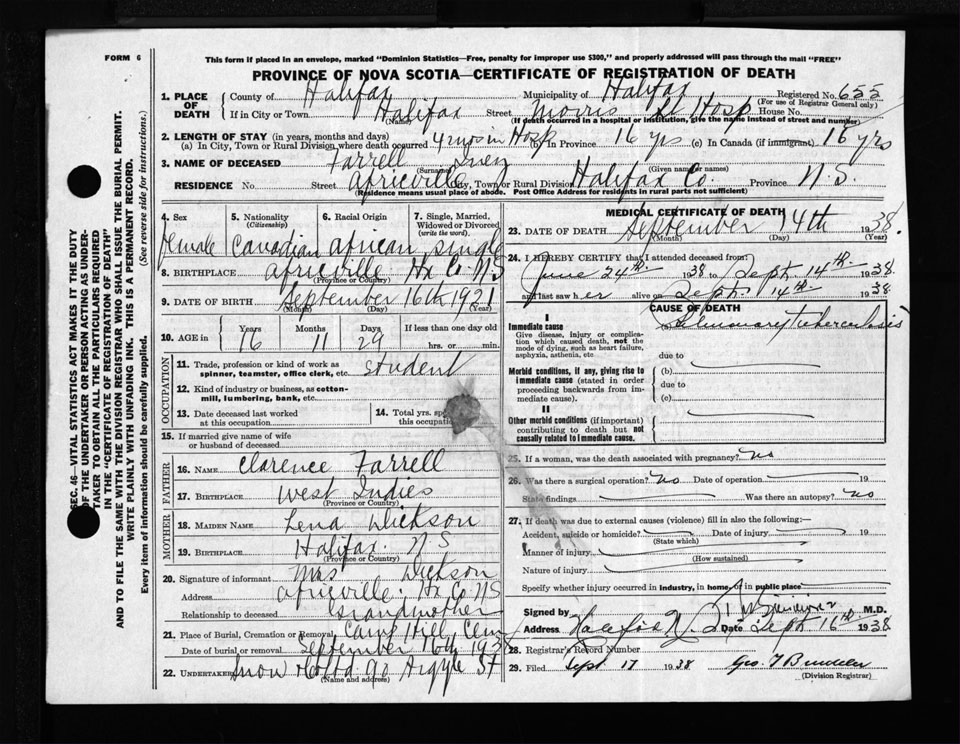 FORM 6
This form if in an envelope, marked "Dominion Statistics—Free, penalty for improper use $300," and properly addressed will pass through the mail "FREE"
PROVINCE OF NOVA SCOTIA—CERTIFICATE OF REGISTRATION OF DEATH
1. PLACE OF DEATH County of Halifax Municipality of Halifax Registered No.
(For use of Registrar General only)
If in City or Town Halifax Street Morris St Hosp House No.
(Name) (If death occurred in a hospital or institution, give the name instead of street and number)
2. LENGTH OF STAY (in years, months and days)
(a) In City, Town or Rural Division where death occurred in Hosp (b) In Province 16 yrs (c) In Canada (if immigrant) 16 yrs
3. NAME OF DECEASED Farrell Inez
(Surname) (Given name or names)
RESIDENCE No. Street Africville City, Town or Rural Division Halifax Co. Province N.S.
(Residence means usual place of abode. Post Office Address for residents in rural parts not sufficient)
4. Sex female
5. Nationality (Citizenship) Canadian
6. Racial Origin african
7. Single, Married, Widowed or Divorced (write the word) single
8. BIRTHPLACE africville Hx Co N S
(Province or Country)
9. DATE OF BIRTH September 16th 1921
(Month) (Day) (Year)
10. AGE in Years 16 Months 11 Days 29 If less than one day old hrs. or min.
OCCUPATION
11. Trade, profession or kind of work as spinner, teamster, office clerk, etc. student
12. Kind of industry or business, as cotton-mill, lumbering, bank, etc.
13. Date deceased last worked at this occupation
14. Total yrs. this occupation
15. If married give name of wife or husband of deceased
FATHER
16. NAME Clarence Farrell
17. BIRTHPLACE West Indies
(Province or Country)
MOTHER
18. MAIDEN NAME Lena Dickson
19. BIRTHPLACE Halifax. N S
(Province or Country)
20. Signature of informant Mrs Dickson
Address africville. Hx Co NS
Relationship to deceased grandmother
21. Place of Burial, Cremation or Removal Camp Hill Cem
Date of burial or removal September 16th 1938
22. UNDERTAKER Snow & Co Ltd 90 Argyle St
(Name and address)
MEDICAL CERTIFICATE OF DEATH
23. DATE OF DEATH September 14th 1938.
(Month) (Day) (Year)
24. I HEREBY CERTIFY that I attended deceased from
June 24th 1938 to Sept. 14th 1938.
and last saw her alive on Sept. 14th 1938
CAUSE OF DEATH
I
Immediate cause
Give disease, injury or complication which caused death, not the mode of dying, such as heart failure, asphyxia, asthenia, etc
Pulmonary tuberculosis
due to
Morbid conditions, if any, giving rise to immediate cause (stated in order proceeding backwards from immediate).
(b)
due to
(c)
II
Other morbid conditions (if important) contributing to death but not causally related to immediate cause.
25. If a woman, was the death associated with pregnancy? no
26. Was there a surgical operation? no Date of operation 19
State findings Was there an autopsy? no
27. If death was due to external causes (violence) fill in also the following:—
Accident, suicide or homicide? Date of injury 19
(State which)
Manner of injury
(How sustained)
Nature of injury
Specify whether injury occurred in industry, in home, or in public place
Signed by M.D.
Address Halifax N S Date Sept 16th 1938
28. Registrar's Record Number
29. Filed Sept 17 1938 Geo. T
(Division Registrar)
SEC. 46—VITAL STATISTICS ACT MAKES IT THE DUTY
OF THE UNDERTAKER OR PERSON ACTING AS UNDER-
TAKER TO OBTAIN ALL THE PARTICULARS REQUIRED
IN THE "CERTIFICATE OF REGISTRATION OF DEATH"
AND TO FILE THE SAME WITH THE DIVISION REGISTRAR WHO SHALL ISSUE THE BURIAL PERMIT.
WRITE PLAINLY WITH UNFADING INK. THIS IS A PERMANENT RECORD.
Every item of information should be carefully supplied. (See reverse side for instructions.)